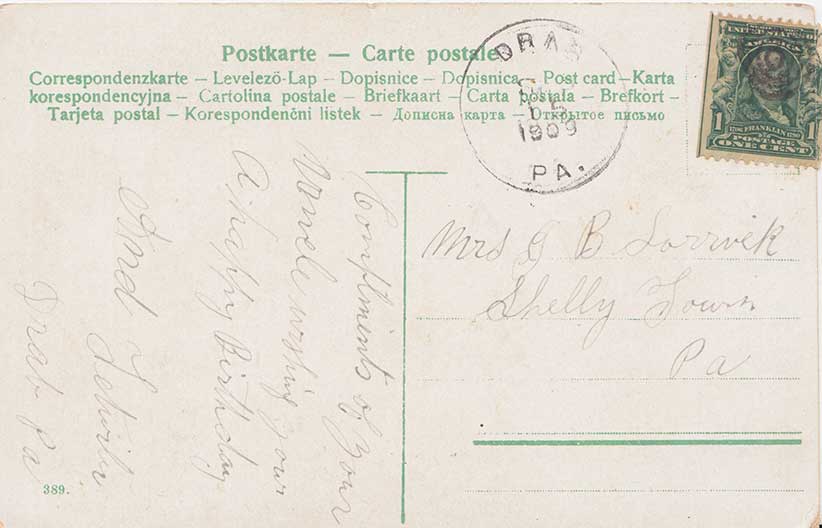 Postkarte — Carte postale
Correspondenzkarte – Levelezö-Lap – Dopisnice – Dopisnica – Post card – Karta
korespondencyjna – Cartolina postale – Briefkaart – Carta postala – Brefkort –
Tarjeta postal – Korespondenčni listek – Дописна карта – Открытое письмо
DRAB
15
1909
PA.
UNITED STATES OF
AMERICA
1706 FRANKLIN 1790
POSTAGE
1 ONE CENT 1
Compliments of Your
Uncle wishing your
A happy Birthday
And
Drab Pa
Mrs G B
Shelly Town
Pa
389.